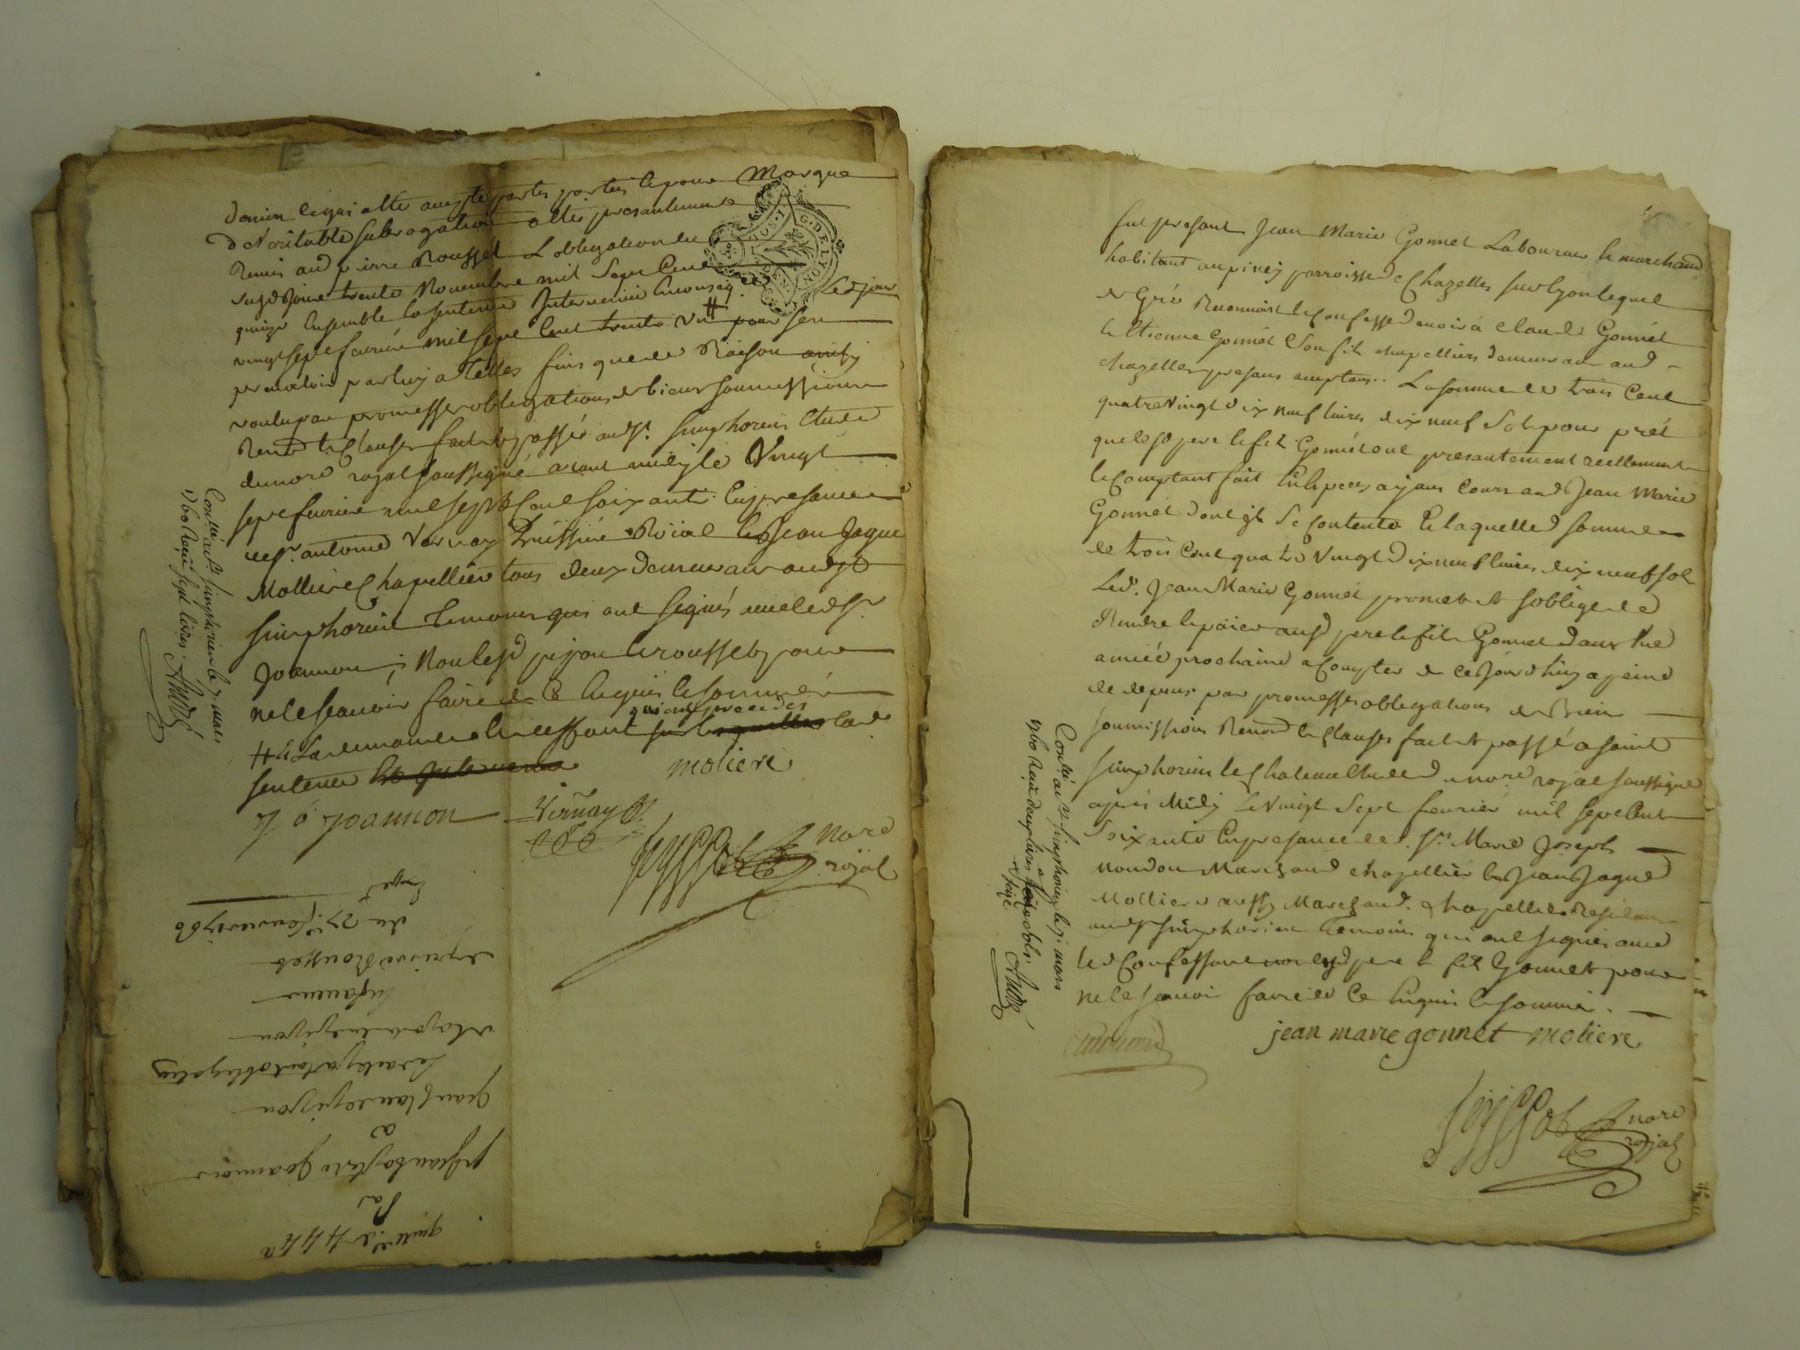 dernier lequel acte acceptte partes parties le pour Marque
de Veritable subrogation atté presentement
Remis aud pierre Rousset L obligation du
susd jour trente Novembre mil Sept Cent
quinze Ensemble la sentence Intervenue
Led jour
vingt sept fevrier mil sept Cent trente pour s'en
prevaloir par luy a Telles fins que de Raison
voulu par promesses obligations de biens soumissions
Renon et Clauses fait et passé aud St. Simphorien Etude
du nore royal soussigné avant midy le Vingt
sept fevrier mil sept Cent soixante En presence
de sr antoine Vernay huissier Roïal et Jean Jaque
Molliere Chapellier tous deux demeurant aud St
Simphorien Temoins qui ont signés avec led sr
Joannon, Non lesd pijon et rousset pour
ne le sçavoir faire de ce Enquis et sommés
# à La demande et
qui ont precedés
lad
sentence
moliere
J B Joannon
Vernay
nore
royal
Contlé a St Simphorien le 7 mars
1760 Reçu sept livres. Andé
Expé
du 27e fevrier 1760
a pierre Rousset
Jean Claude pijon
a
sr jean baptiste Joannon
Par
quitt.
444
fut present Jean Marie Gonnet Laboureur et marchand
habitant au piney parroisse de Chazelles sur lyon lequel
de Gré Reconnoit et Confesse devoir à Claude Gonnet
et Etienne Gonnet Son fils chapelliers demeurant aud
chazelles presens acceptans.. La somme de trois Cent
quatre Vingt dix neuf livres dix neuf Sols pour prét
que lesd pere et fil Gonnét ont presentement reellement
et Comptant fait En Especes ayans Cours aud Jean Marie
Gonnét dont il Se Contente Et laquelle d somme
de trois Cent quatre Vingt dix neuf livres dix neuf sols
Led. Jean Marie Gonnét promet et s oblige de
Rendre et paier ausd pere et fils Gonnet dans Une
année prochaine a Compter de Ce Jourd'huy a peine
de depens par promesses obligations de Biens
soumissions Renon et Clauses fait et passé a saint
Simphorien le Chateau Etude du nore royal soussigné
après Midy le Vingt Sept fevrier mil sept Cent
Soixante En presence de Sr. Marie Joseph
Marchand chapellier et Jean Jaque
Molliere aussy Marchand Chapellier Residans
aud St Simphorien Temoins qui ont signés avec
led Confessant non lesd pere et fil Gonnet pour
ne le sçavoir faire de Ce Enquis et sommés.
jean marie gonnet moliere
nore
royal
Contlé a St Simphorien le 7 mars
1760 Reçu
Andé